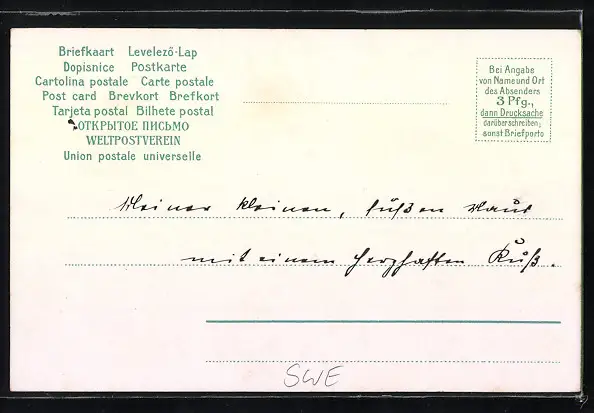 Briefkaart Levelező-Lap
Dopisnice Postkarte
Cartolina postale Carte postale
Post card Brevkort Brefkort
Tarjeta postal Bilhete postal
ОТКРЫТОЕ ПИСЬМО
WELTPOSTVEREIN
Union postale universelle
Bei Angabe
von Name und Ort
des Absenders
3 Pfg.,
dann Drucksache
darüber schreiben;
sonst Briefporto
Meiner kleinen, süßen Maus
mit einem herzhaften Kuß.
SWE